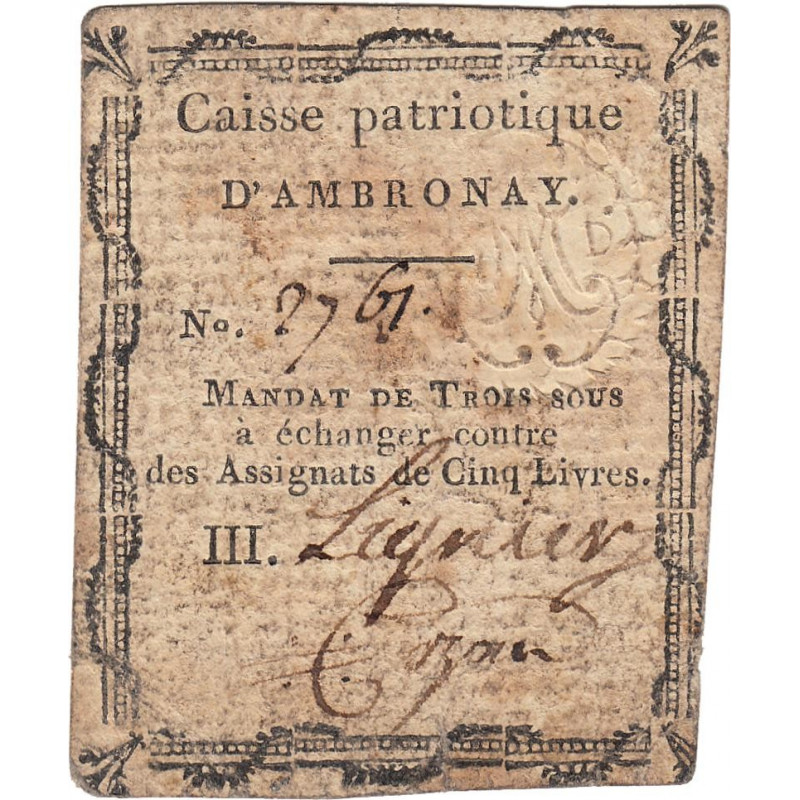 Caisse patriotique
D'AMBRONAY.
No. 2761.
MANDAT DE TROIS SOUS
à échanger contre
des Assignats de Cinq Livres.
III. Lignier